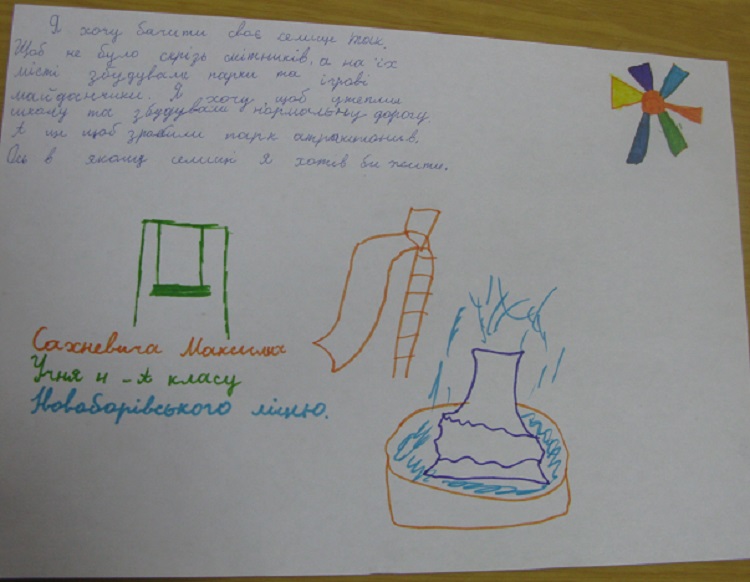 Я хочу бачити своє селище так.
Щоб не було скрізь смітників, а на їх
місті збудували парки та ігрові
майданчики. Я хочу, щоб утеплили
школу та збудували нормальну дорогу
А ще щоб зробили парк атракціонів.
Ось в якому селищі я хотів би жити.
Сахневича Максима
Учня 4 - А класу
Новоборівського ліцею.